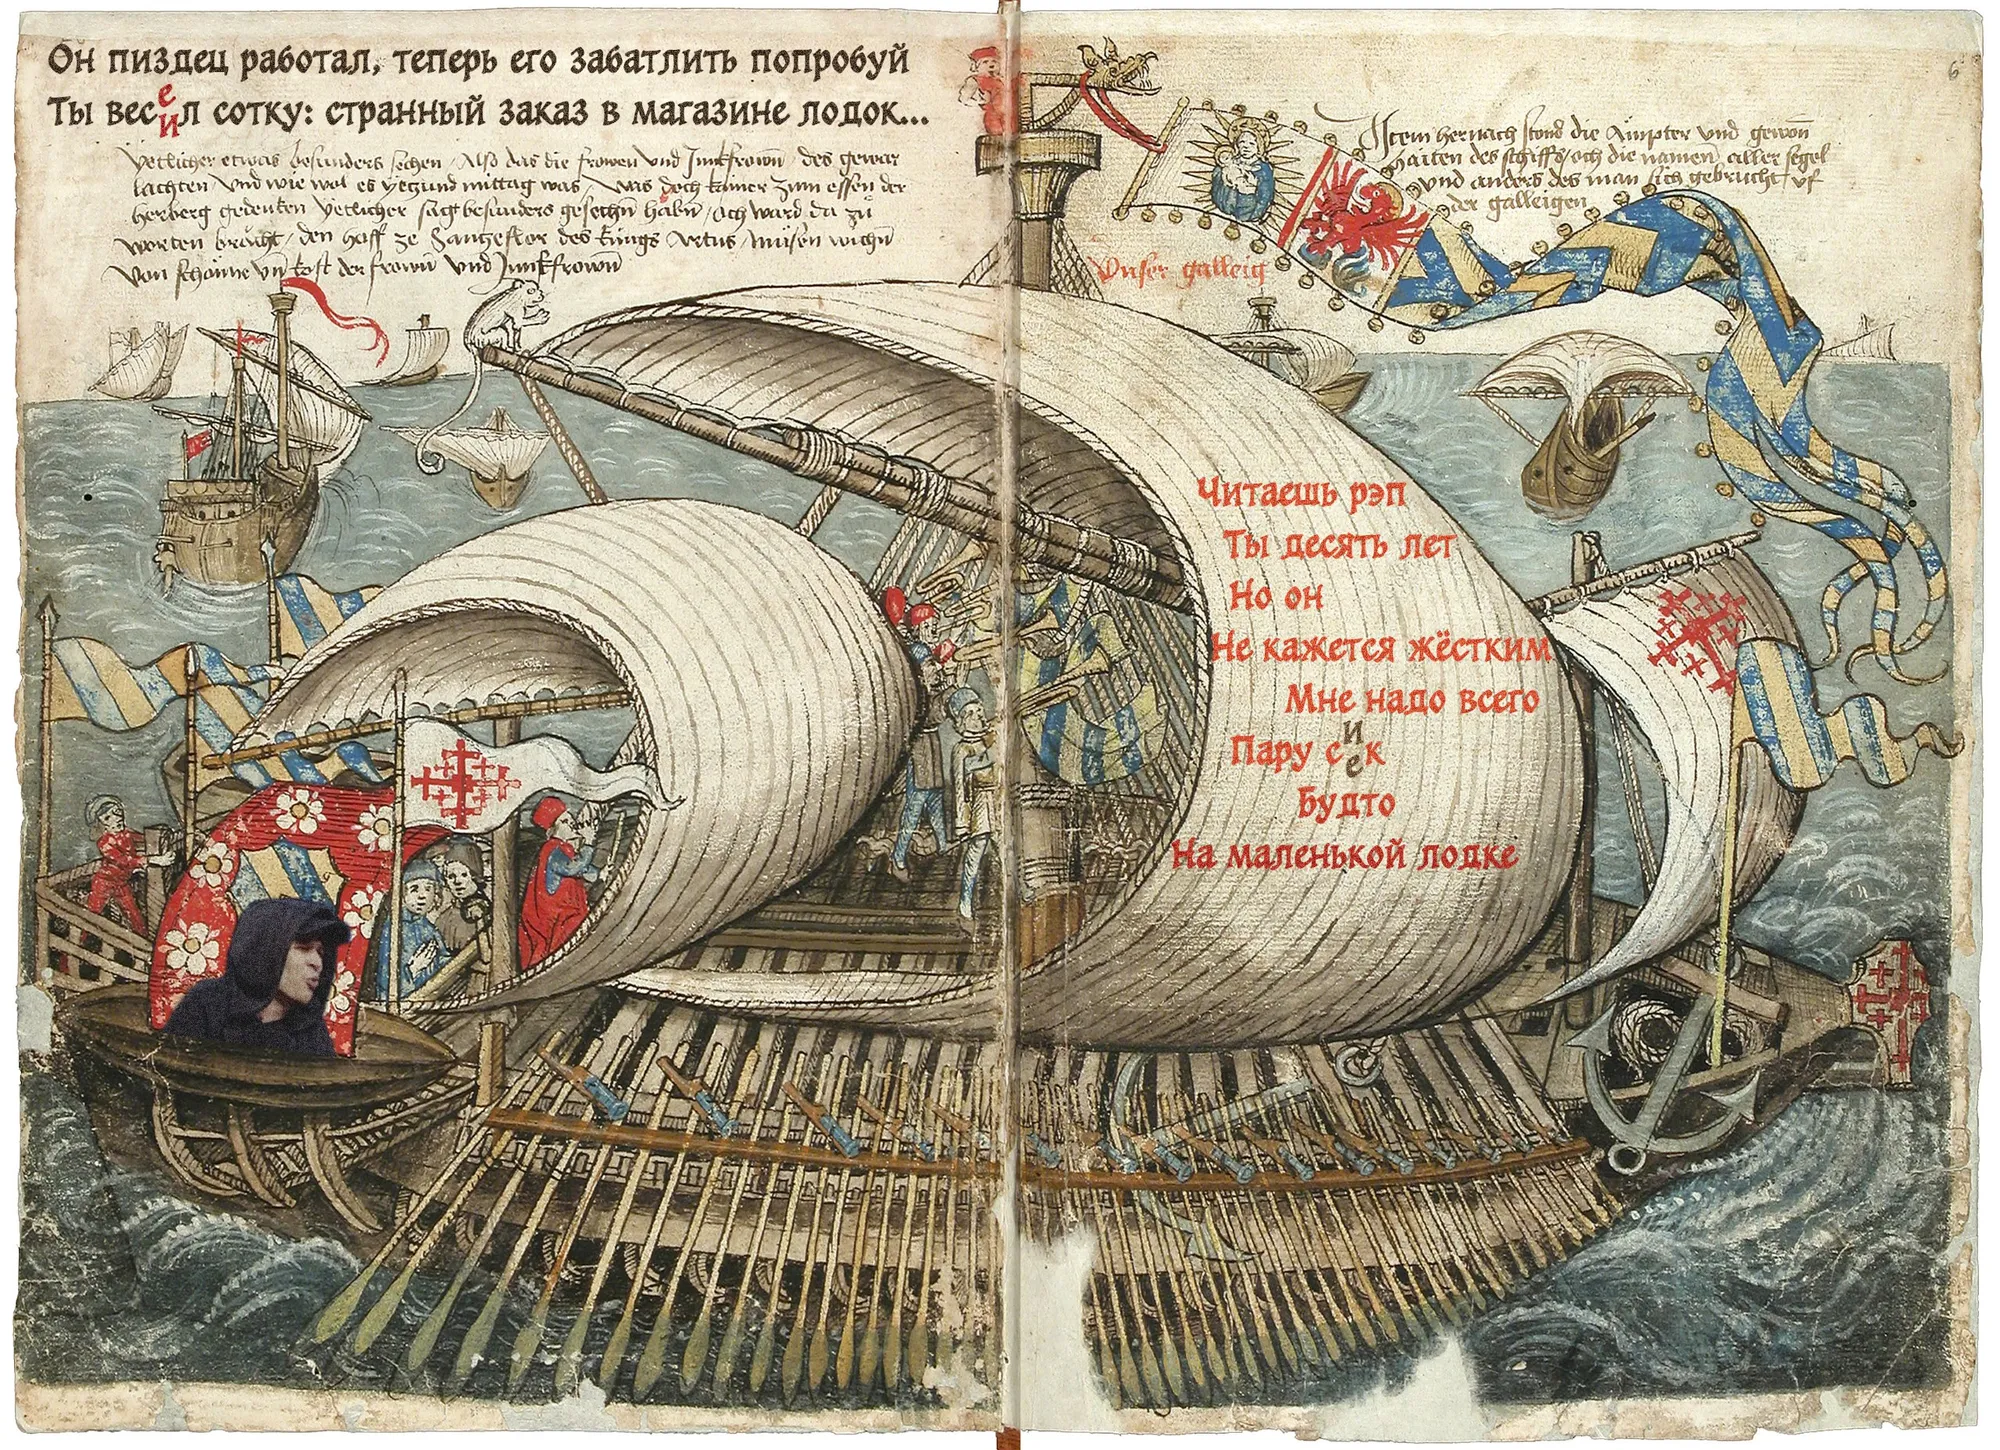 Он пиздец работал, теперь его забатлить попробуй
Ты весеил сотку: странный заказ в магазине лодок...
yetlicher etwas besunders sechen / Also das die frowen vnd Junkfrown des
lachten / vnd wie wol es yetzund mittag was / was doch kainer zum essen der
herberg gedencken yetlicher sag besunders gesechn habn / och ward da zu
worten / den hoff ze des kungs Artus / musen
von schonne vn kost der frown vnd Junkfrown
6
Item hernach stond die Ampter vnd gewon
haiten des schiffs / och die namen aller segel
vnd anders des man sich gebrucht vf
der galleigen
Vnser galleig
Читаешь рэп
Ты десять лет
Но он
Не кажется жёстким
Мне надо всего
Пару сиек
Будто
На маленькой лодке